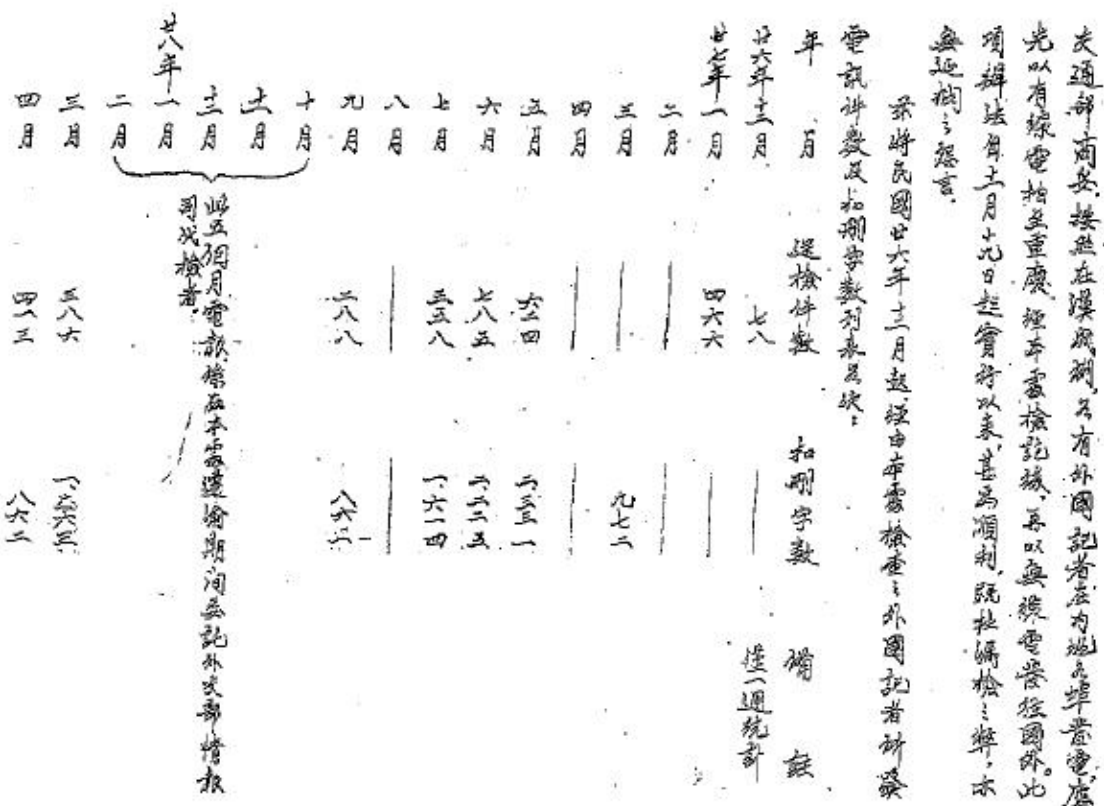 交通部商妥,接照在漢成例,各有外國記者在內地各埠發電,應
先以有線電拍至重慶,經本處檢訖後,再以無線電發往國外。此
項辦法自十二月十九日起實行以來,甚為順利,既杜漏檢之弊,亦
無延擱之怨言。
茲將民國廿六年十二月起經由本處檢查之外國記者所發
電訊件數及扣刪字數列表呈後:
年 月 送檢件數 扣刪字數 備註
廿六年十二月 七八 — 僅一週統計
廿七年一月 四六六 —
二月 — —
三月 — 九七二
四月 — —
五月 六二四 二、三三一
六月 七八五 二、二二五
七月 三五八 一、六一四
八月 — —
九月 二八八 八六二
十月
十一月
十二月
廿八年一月
二月
此五個月電報係在本處遷渝期間委託外交部情報
司代檢者。
三月 三八六 一、六六三
四月 四一三 八六二